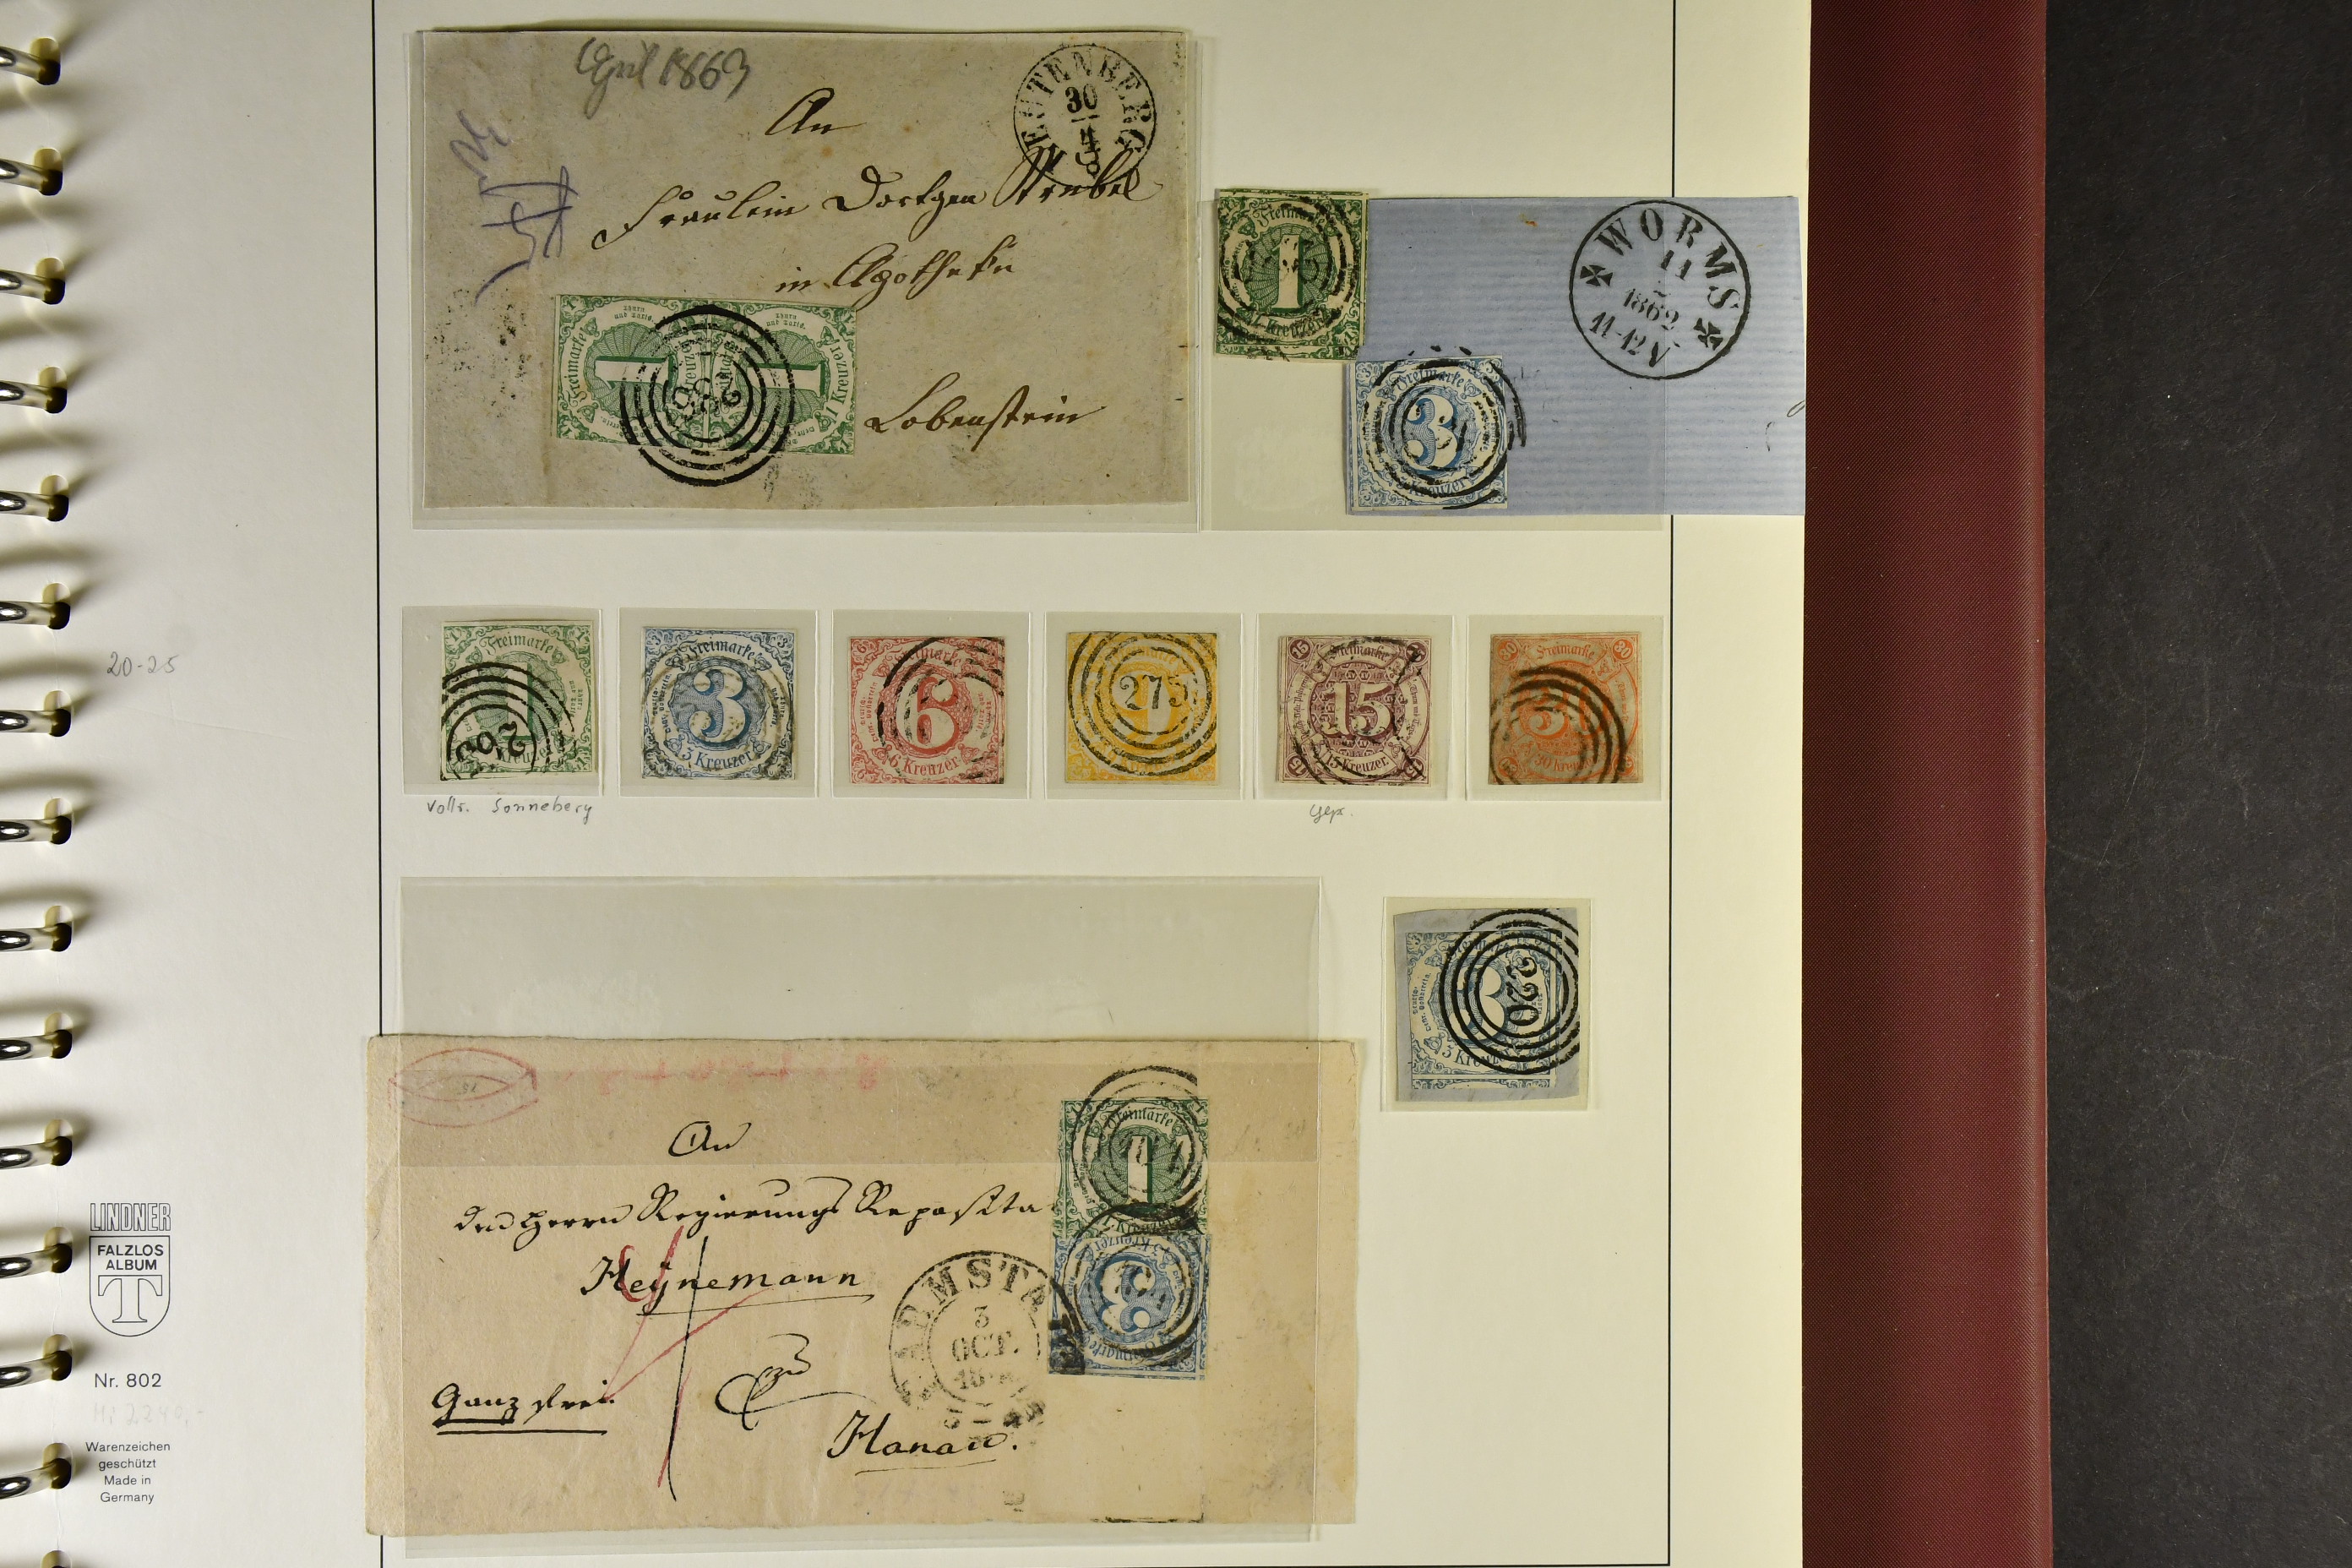 April 1863
An
Fräulein Dortgen Strebel
in Apotheke
Lobenstein
30
4
Freimarke
1 Kreuzer
Thurn
und Taxis.
1 Kreuzer
Freimarke
1 Kreuzer
WORMS
11
1862
11-12 V
Freimarke
3
Kreuzer
20-25
Freimarke
Freimarke
3
3 Kreuzer
6
6 Kreuzer
275
15
Freimarke
15
15 Kreuzer.
30
Freimarke
30
30 Kreuzer
Vollst. Sonneberg
Gepr.
220
3 Kreuzer
Freimarke
1
Kreuzer
3 Kreuzer
3
An
den Herrn Regierungs Reposita
Heÿnemann
3
OCT.
zu
Ganz frei.
Hanau.
LINDNER
FALZLOS
ALBUM
T
Nr. 802
Mi 2240,-
Warenzeichen
geschützt
Made in
Germany